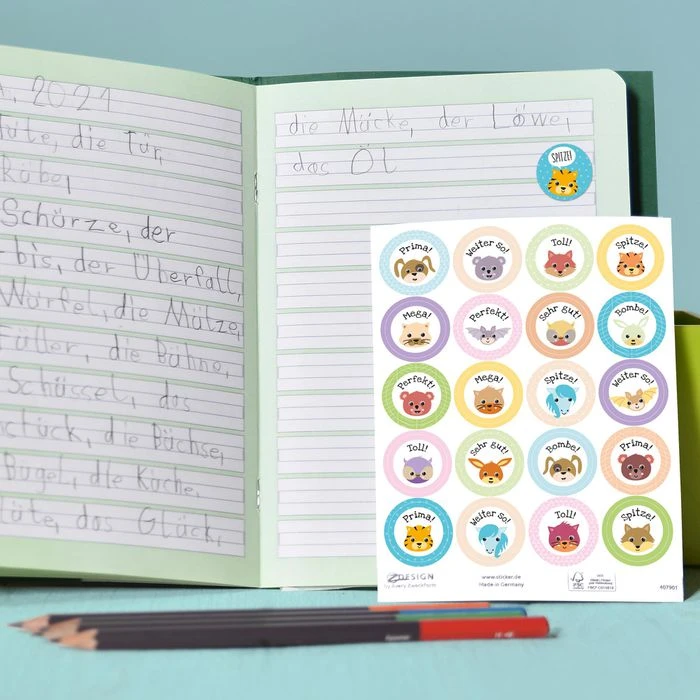 2021
die Tür,
Schürze, der
bis, der Überfall,
Würfel, die Mütze,
Füller, die Bühne,
Schüssel, das
die Büchse,
Bügel, die Küche,
das Glück,
die Mücke, der Löwe,
das Öl
SPITZE!
Prima! Weiter so! Toll! Spitze!
Mega! Perfekt! Sehr gut! Bombe!
Perfekt! Mega! Spitze! Weiter so!
Toll! Sehr gut! Bombe! Prima!
Prima! Weiter so! Toll! Spitze!
ZDESIGN
by Avery Zweckform
www.sticker.de
Made in Germany
FSC
407961